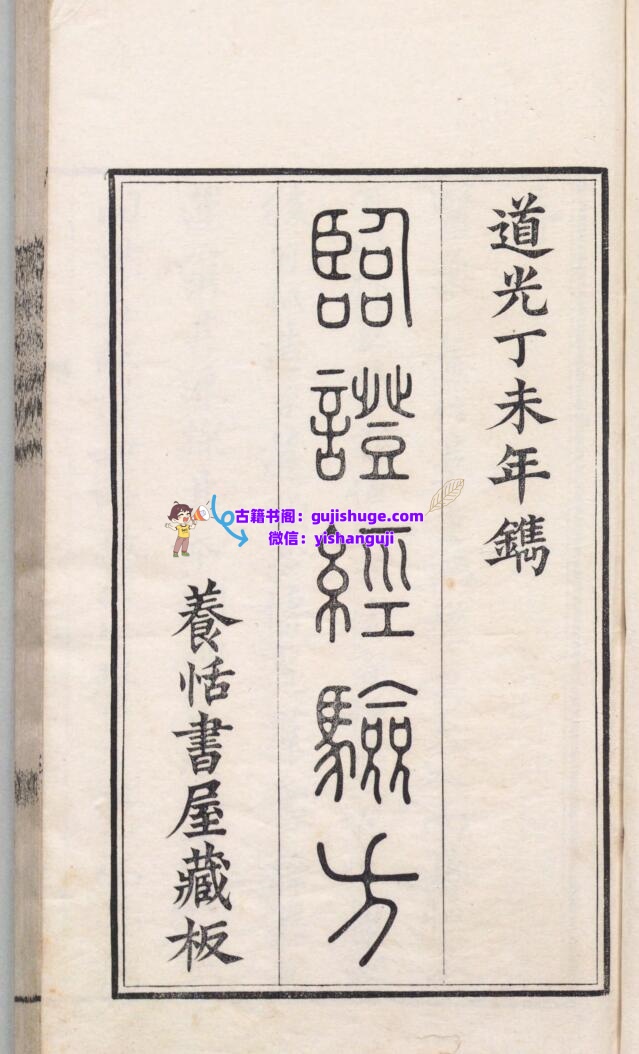 道光丁未年鐫
臨證經驗方
養恬書屋藏板
古籍书阁：gujishuge.com
微信：yishanguji